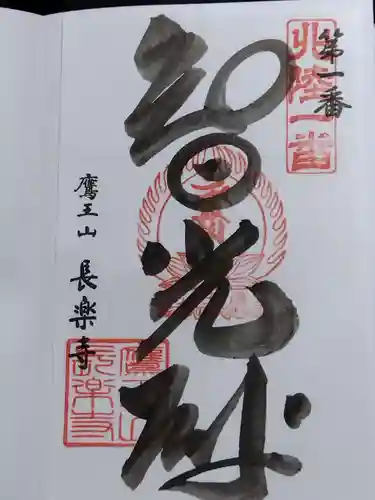 第一番
北陸一番
智光殿
鷹王山 長楽寺
鷹王山長楽寺